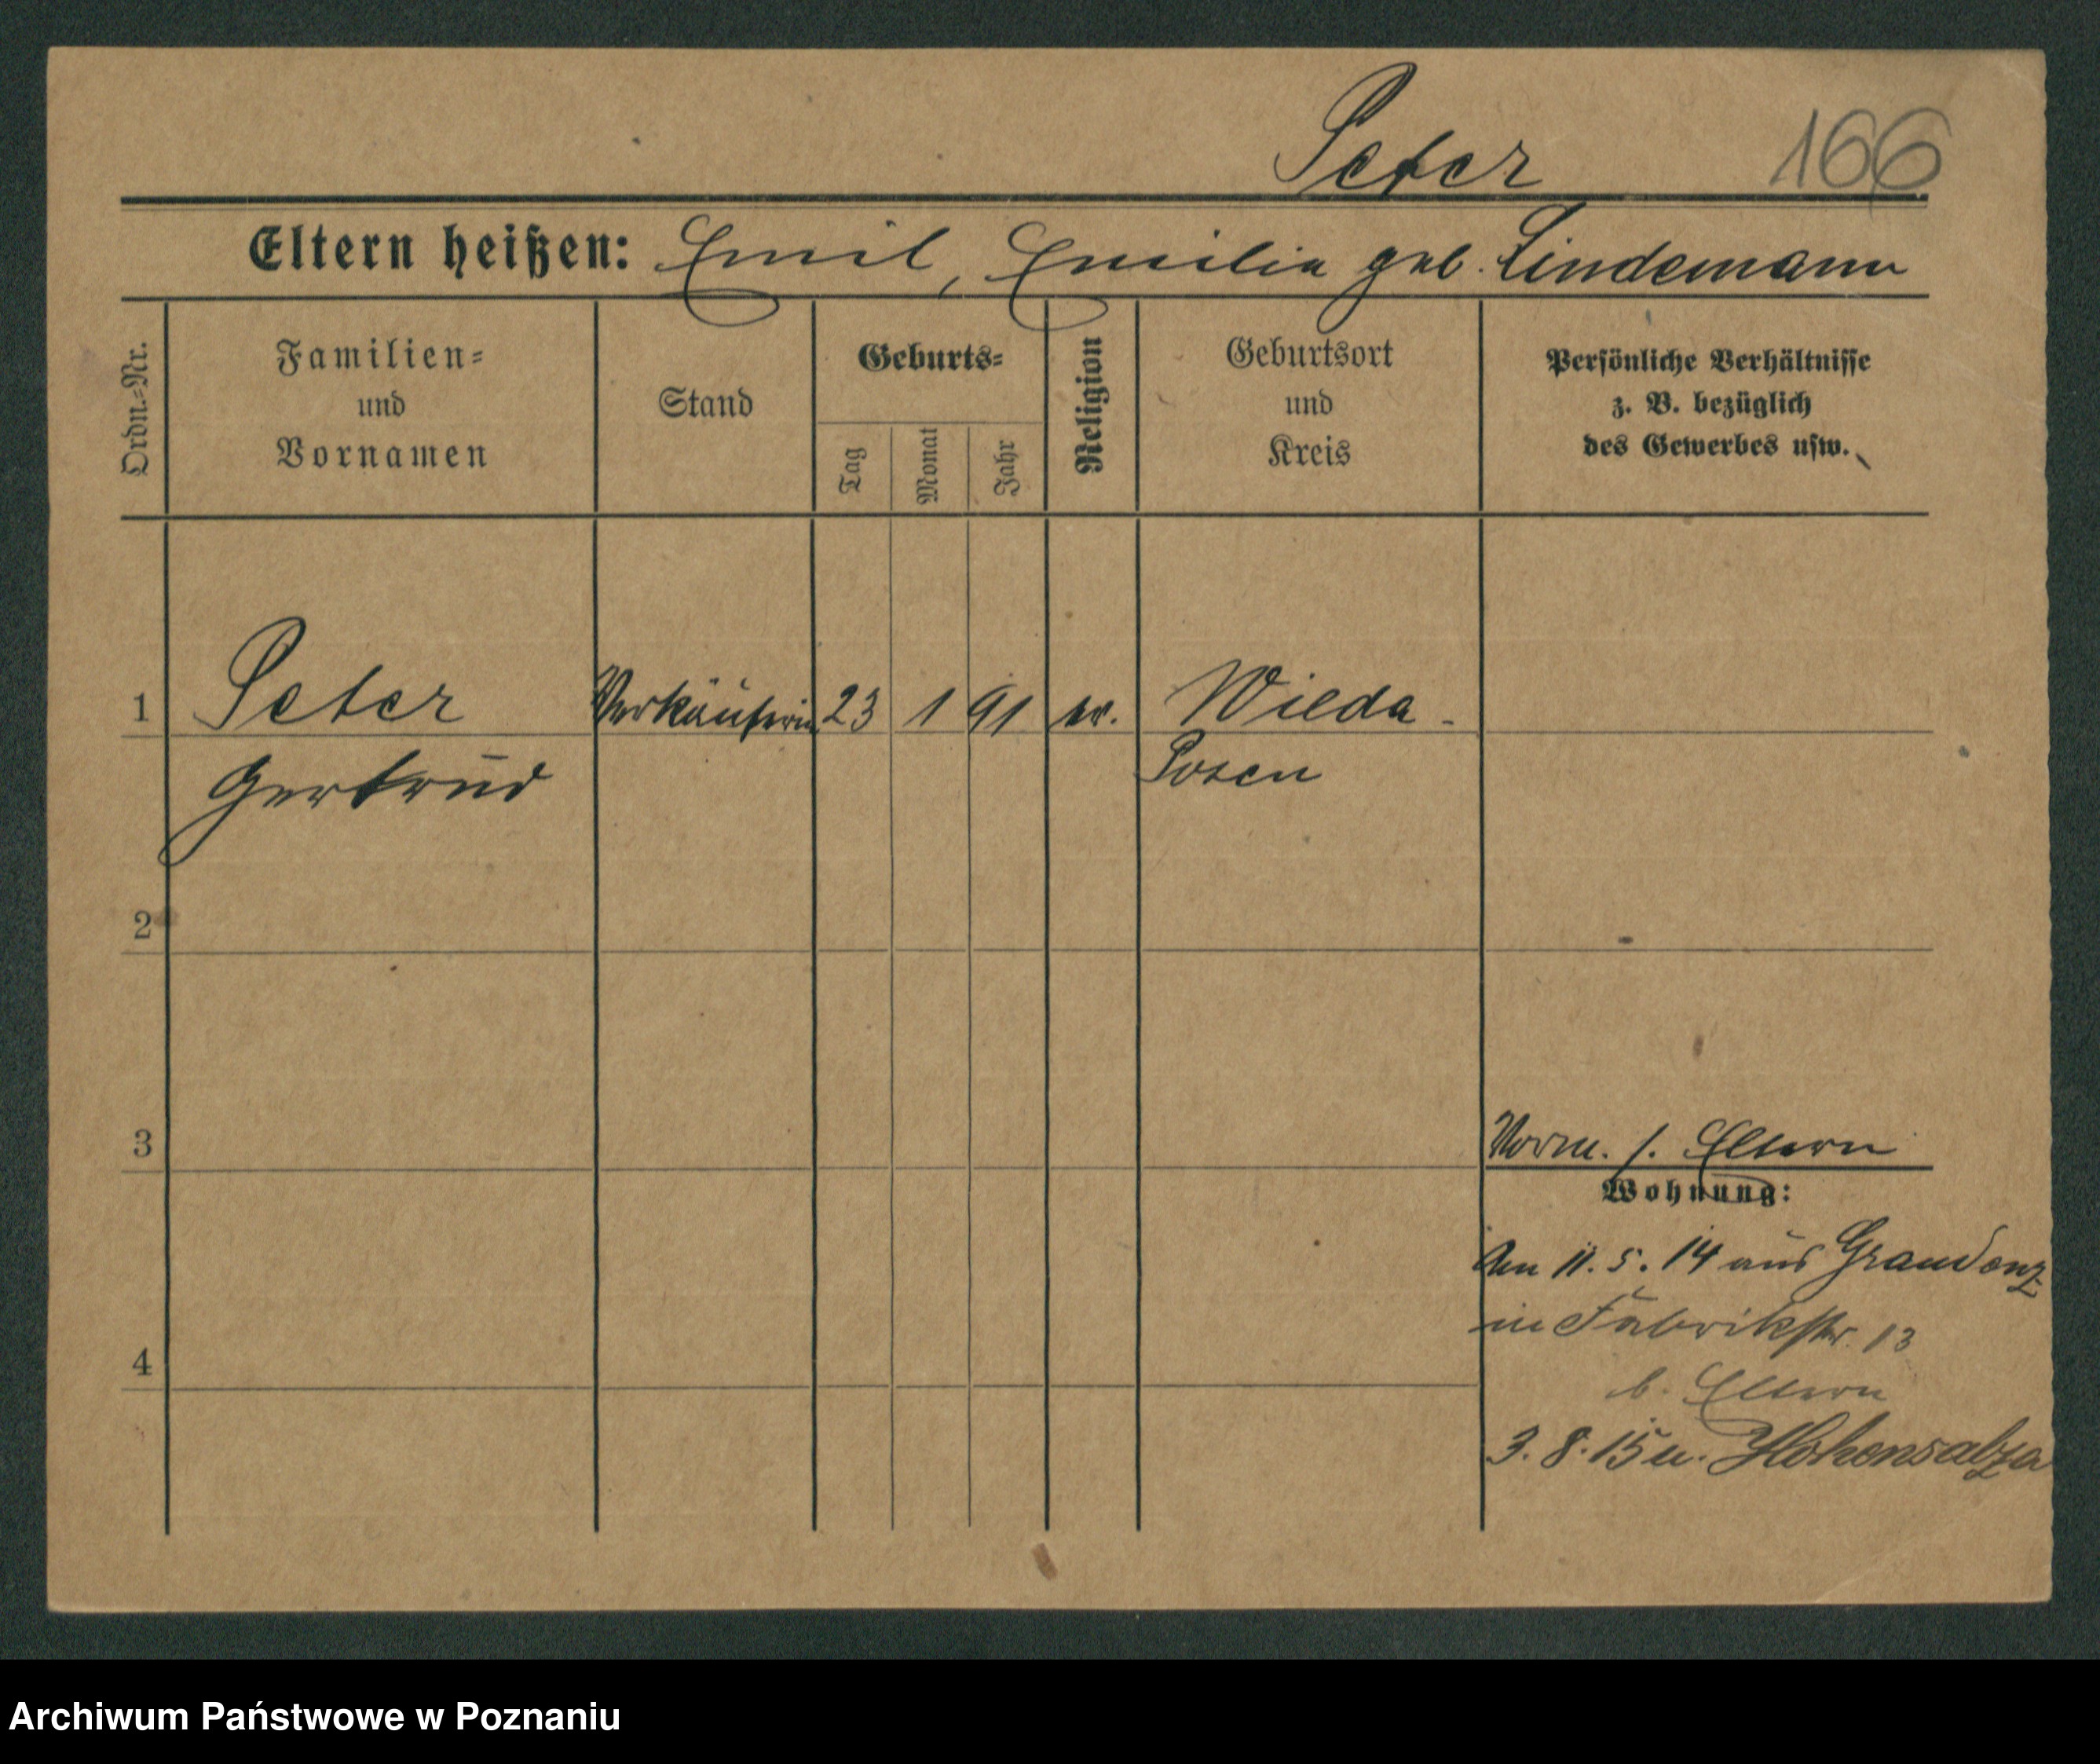 Peter 166
Eltern heißen: Emil, Emilia geb. Lindemann
Ordn.-Nr.
Familien-
und
Vornamen
Stand
Geburts-
Tag
Monat
Jahr
Religion
Geburtsort
und
Kreis
Persönliche Verhältnisse
z. B. bezüglich
des Gewerbes usw.
1 Peter Verkäuferin 23 1 91 ev. Wilda -
Gertrud Posen
2
3 Vorm. s. Eltern
Wohnung:
Am 11. 5. 14 aus Graudenz
in Fabrikstr. 13
4
b. Eltern
3. 8. 15 n. Hohensalza
Archiwum Państwowe w Poznaniu